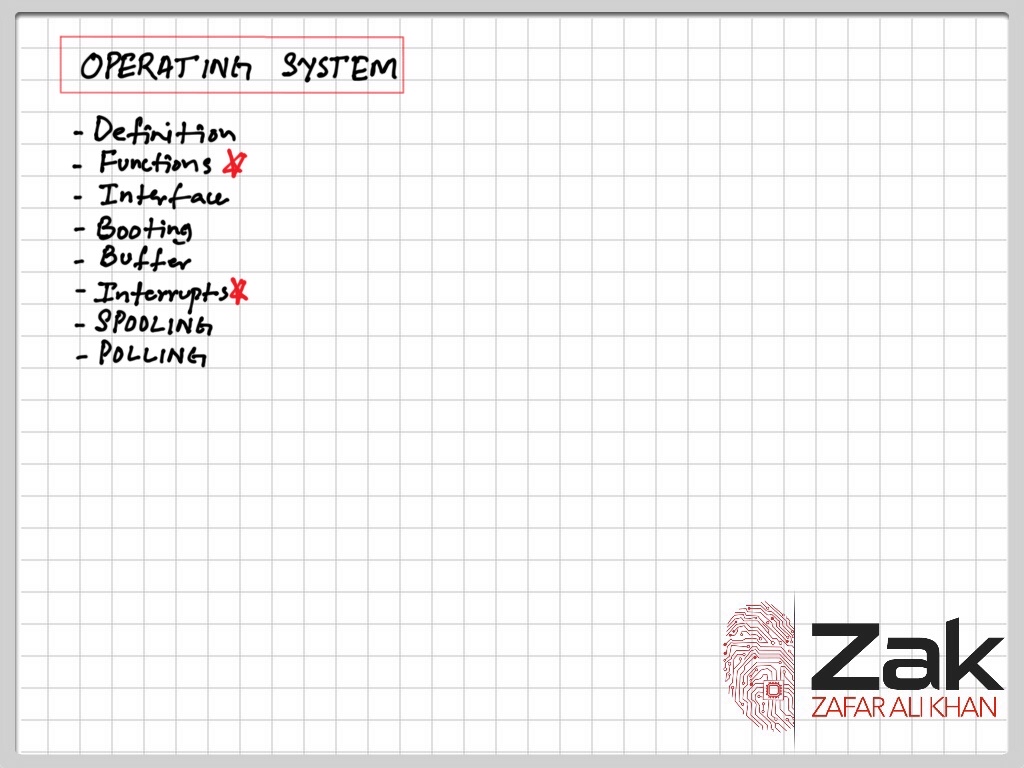 OPERATING SYSTEM
- Definition
- Functions
- Interface
- Booting
- Buffer
- Interrupts
- SPOOLING
- POLLING
Zak
ZAFAR ALI KHAN